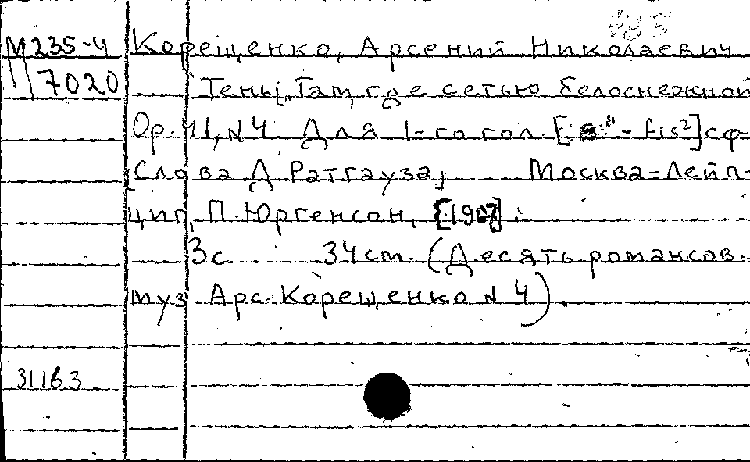 М235-4 Корещенко, Арсений Николаевич
7020 Тени. Там, где сетью белоснежной
Op. 11, N4. Для 1-го гол. - fis²] с ф-
[Слова Д. Ратгауза] Москва-Лейп-
циг, П. Юргенсон,
3 с 34 см. (Десять романсов.
муз. Арс. Корещенко N 4).
31183